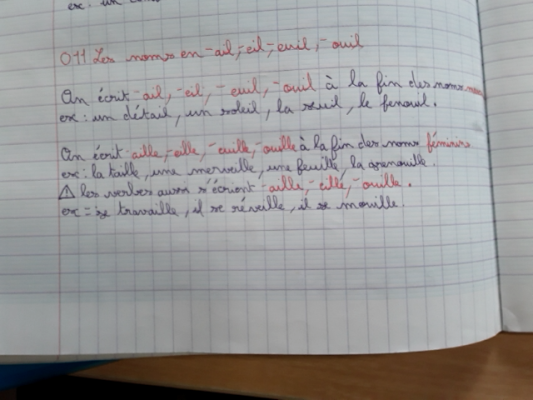 ex: un
O11 Les noms en -ail, -eil, -euil, -ouil
On écrit -ail, -eil, -euil, -ouil à la fin des noms
ex: un détail, un soleil, la seuil, le fenouil.
On écrit -aille, -eille, -euille, -ouille à la fin des noms féminins
ex: la taille, une merveille, une feuille, la grenouille.
⚠ les verbes aussi s'écrivent -aille, -eille, -ouille.
ex = je travaille, il se réveille, il se mouille.